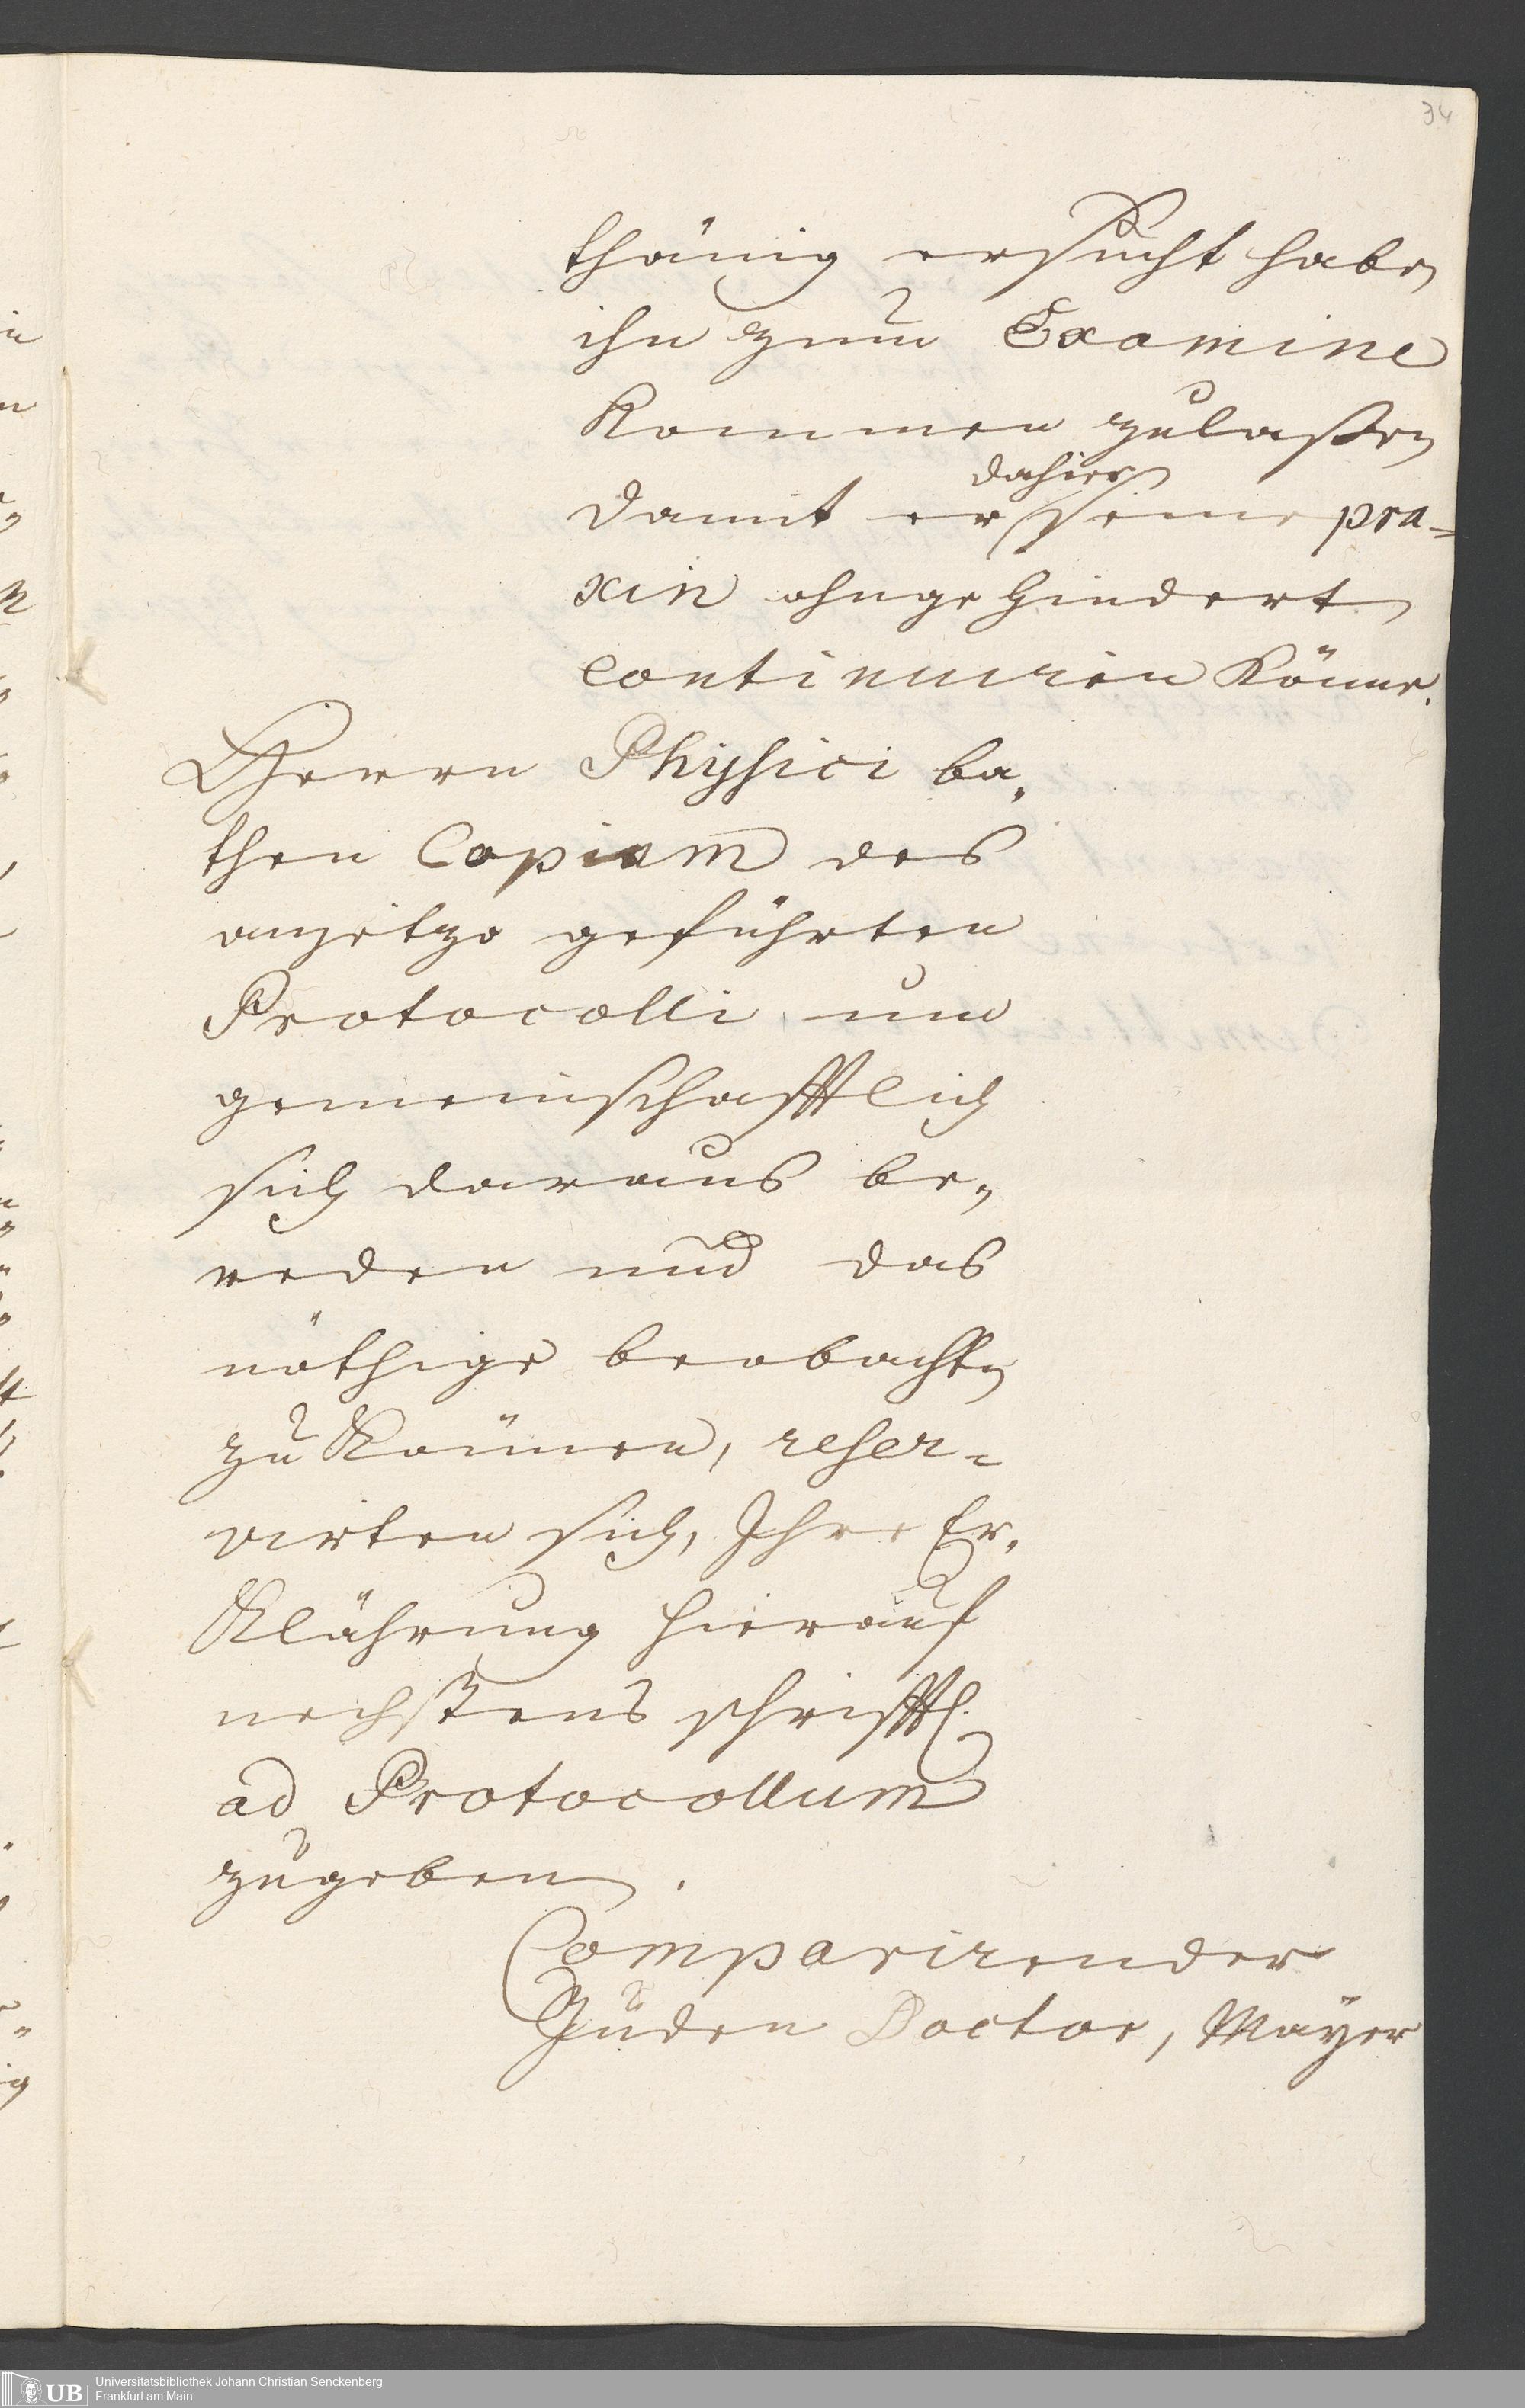 34
thänig ersucht haben
ihn zum Examine
kommen zulaßen
dahier
damit er seine pra-
xin ohngehindert
continuiren könne.
Herren Physici ba,
then Copiam des
anjetzo geführten
Protocolli um
gemeinschafftlich
sich daraus be,
reden und das
nöthige beobachten
zu können, reser-
virten sich, Ihre Er,
klährung hierauf
nechstens schrifftl.
ad Protocollum
zugeben.
Comparirender
Juden Doctor, Mayer
UB
Universitätsbibliothek Johann Christian Senckenberg
Frankfurt am Main